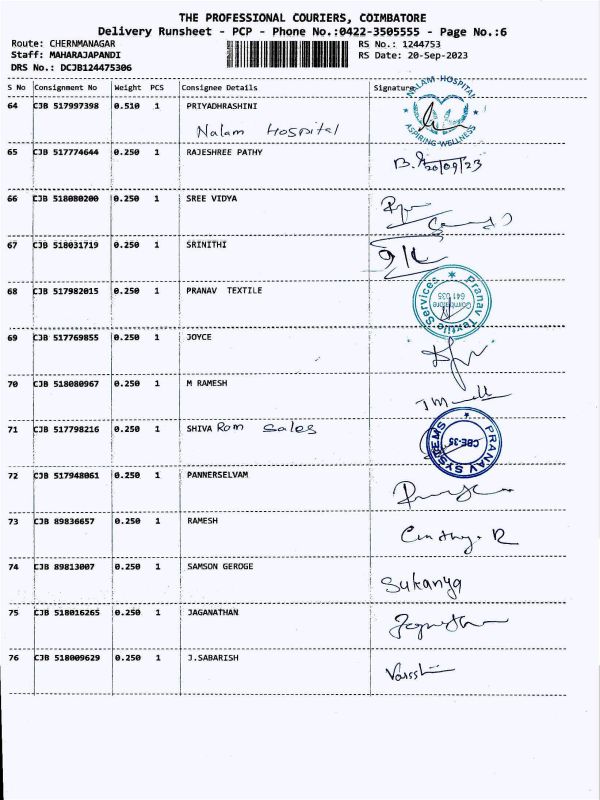 THE PROFESSIONAL COURIERS, COIMBATORE
Delivery Runsheet - PCP - Phone No.:0422-3505555 - Page No.:6
Route: CHERNMANAGAR RS No.: 1244753
Staff: MAHARAJAPANDI RS Date: 20-Sep-2023
DRS No.: DCJB124475306
S No Consignment No Weight PCS Consignee Details Signature
64 CJB 517997398 0.510 1 PRIYADHRASHINI
Nalam Hospital
NALAM HOSPITAL
ASPIRING WELLNESS
65 CJB 517774644 0.250 1 RAJESHREE PATHY
20/09/23
66 CJB 518080200 0.250 1 SREE VIDYA
67 CJB 518031719 0.250 1 SRINITHI
68 CJB 517982015 0.250 1 PRANAV TEXTILE
Pranav Textile Services
Coimbatore
641 035
69 CJB 517769855 0.250 1 JOYCE
70 CJB 518080967 0.250 1 M RAMESH
71 CJB 517798216 0.250 1 SHIVA Rom Sales
PRANAV SYSTEMS
CBE-35
72 CJB 517948061 0.250 1 PANNERSELVAM
73 CJB 89836657 0.250 1 RAMESH
74 CJB 89813007 0.250 1 SAMSON GEROGE
Sukanya
75 CJB 518016265 0.250 1 JAGANATHAN
76 CJB 518009629 0.250 1 J.SABARISH